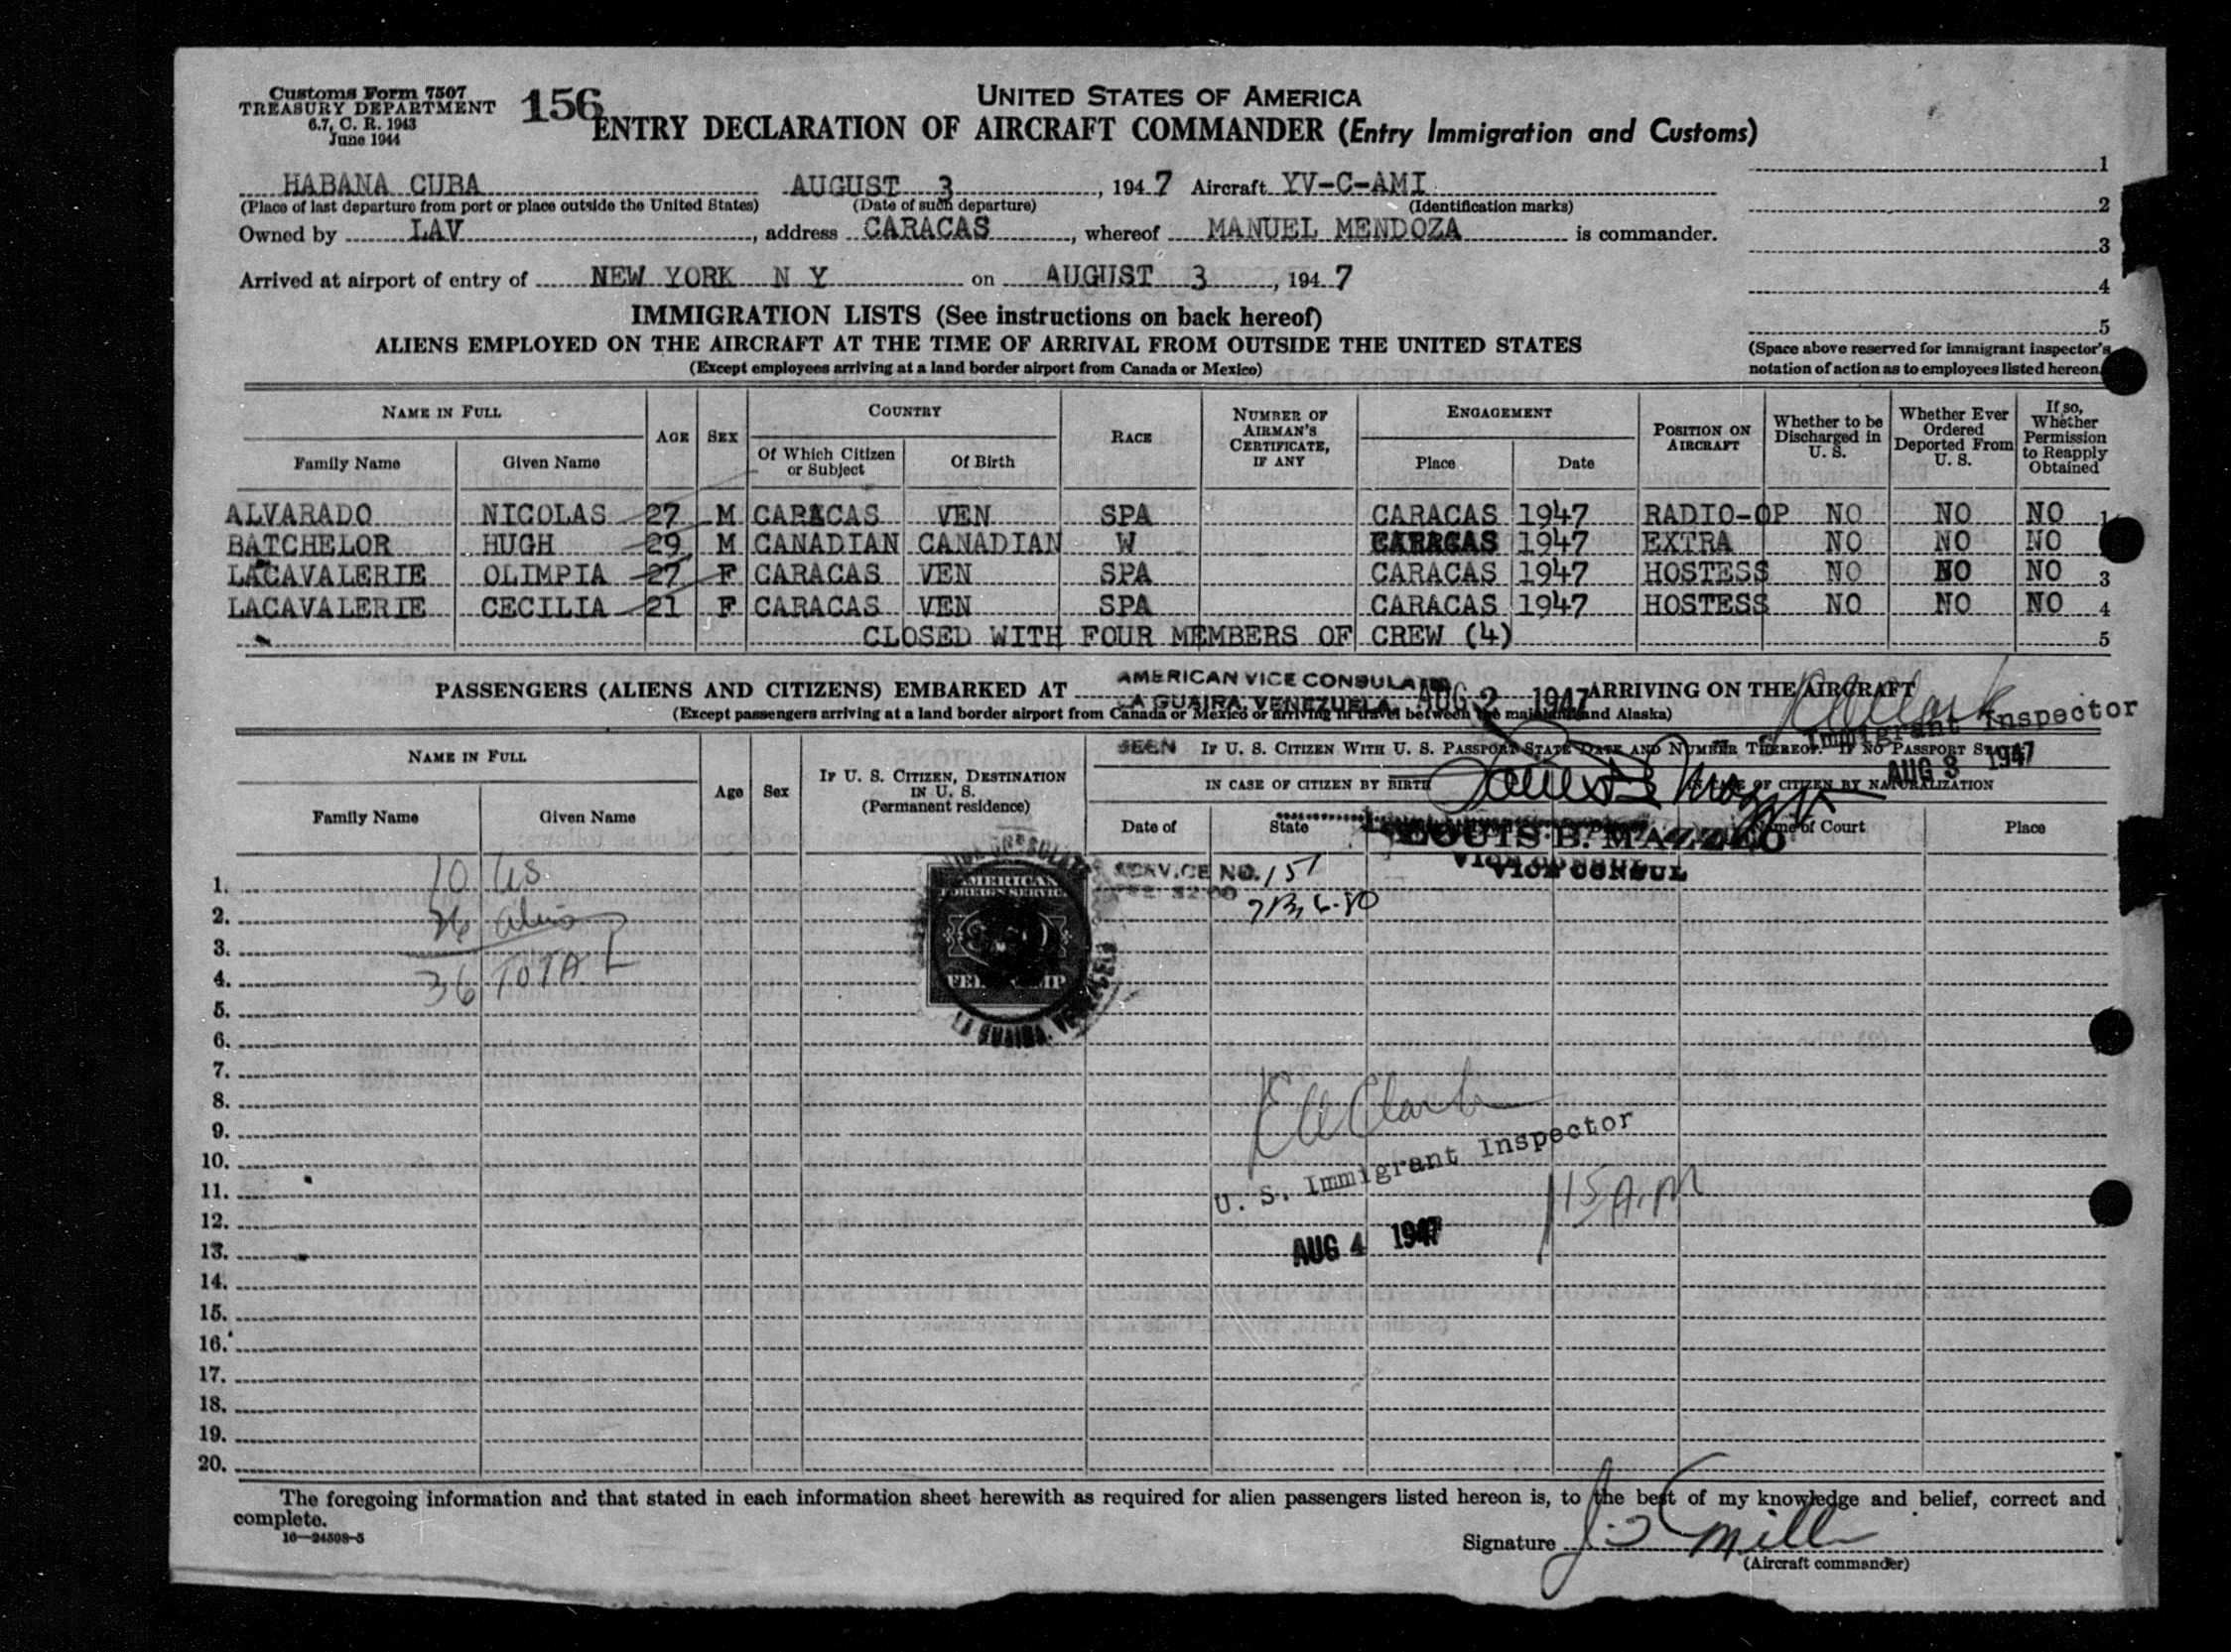 Customs Form 7507
TREASURY DEPARTMENT
6.7, C. R. 1943
June 1944
156
UNITED STATES OF AMERICA
ENTRY DECLARATION OF AIRCRAFT COMMANDER (Entry Immigration and Customs)
HABANA CUBA AUGUST 3, 1947 Aircraft YV-C-AMI
(Place of last departure from port or place outside the United States) (Date of such departure) (Identification marks)
Owned by LAV, address CARACAS, whereof MANUEL MENDOZA is commander.
Arrived at airport of entry of NEW YORK N Y on AUGUST 3, 1947
1
2
3
4
5
(Space above reserved for immigrant inspector's
notation of action as to employees listed hereon.
IMMIGRATION LISTS (See instructions on back hereof)
ALIENS EMPLOYED ON THE AIRCRAFT AT THE TIME OF ARRIVAL FROM OUTSIDE THE UNITED STATES
(Except employees arriving at a land border airport from Canada or Mexico)
NAME IN FULL
Family Name Given Name
AGE SEX
COUNTRY
Of Which Citizen or Subject Of Birth
RACE
NUMBER OF AIRMAN'S CERTIFICATE, IF ANY
ENGAGEMENT
Place Date
POSITION ON AIRCRAFT
Whether to be Discharged in U. S.
Whether Ever Ordered Deported From U. S.
If so, Whether Permission to Reapply Obtained
ALVARADO NICOLAS 27 M CARACAS VEN SPA CARACAS 1947 RADIO-OP NO NO NO 1
BATCHELOR HUGH 29 M CANADIAN CANADIAN W CARACAS 1947 EXTRA NO NO NO
LACAVALERIE OLIMPIA 27 F CARACAS VEN SPA CARACAS 1947 HOSTESS NO NO NO 3
LACAVALERIE CECILIA 21 F CARACAS VEN SPA CARACAS 1947 HOSTESS NO NO NO 4
CLOSED WITH FOUR MEMBERS OF CREW (4) 5
AMERICAN VICE CONSULATE
LA GUAIRA, VENEZUELA. AUG 2 1947
PASSENGERS (ALIENS AND CITIZENS) EMBARKED AT ARRIVING ON THE AIRCRAFT
(Except passengers arriving at a land border airport from Canada or Mexico or arriving in travel between the mainland and Alaska)
Immigrant Inspector
AUG 3 1947
SEEN
NAME IN FULL
Family Name Given Name
Age Sex
IF U. S. CITIZEN, DESTINATION IN U. S.
(Permanent residence)
IF U. S. CITIZEN WITH U. S. PASSPORT STATE DATE AND NUMBER THEREOF. IF NO PASSPORT STATE
IN CASE OF CITIZEN BY BIRTH IN CASE OF CITIZEN BY NATURALIZATION
Date of State Name of Court Place
LOUIS B. MAZZEO
VICE CONSUL
SERVICE NO. 151
FEE $2.00
AMERICAN
FOREIGN SERVICE
FEE STAMP
LA GUAIRA, VENEZUELA
10 US
26 alien
36 TOTAL
1.
2.
3.
4.
5.
6.
7.
8.
9.
10.
11.
12.
13.
14.
15.
16.
17.
18.
19.
20.
U. S. Immigrant Inspector
115 A.M
AUG 4 1947
The foregoing information and that stated in each information sheet herewith as required for alien passengers listed hereon is, to the best of my knowledge and belief, correct and
complete.
16—24508-5
Signature
(Aircraft commander)